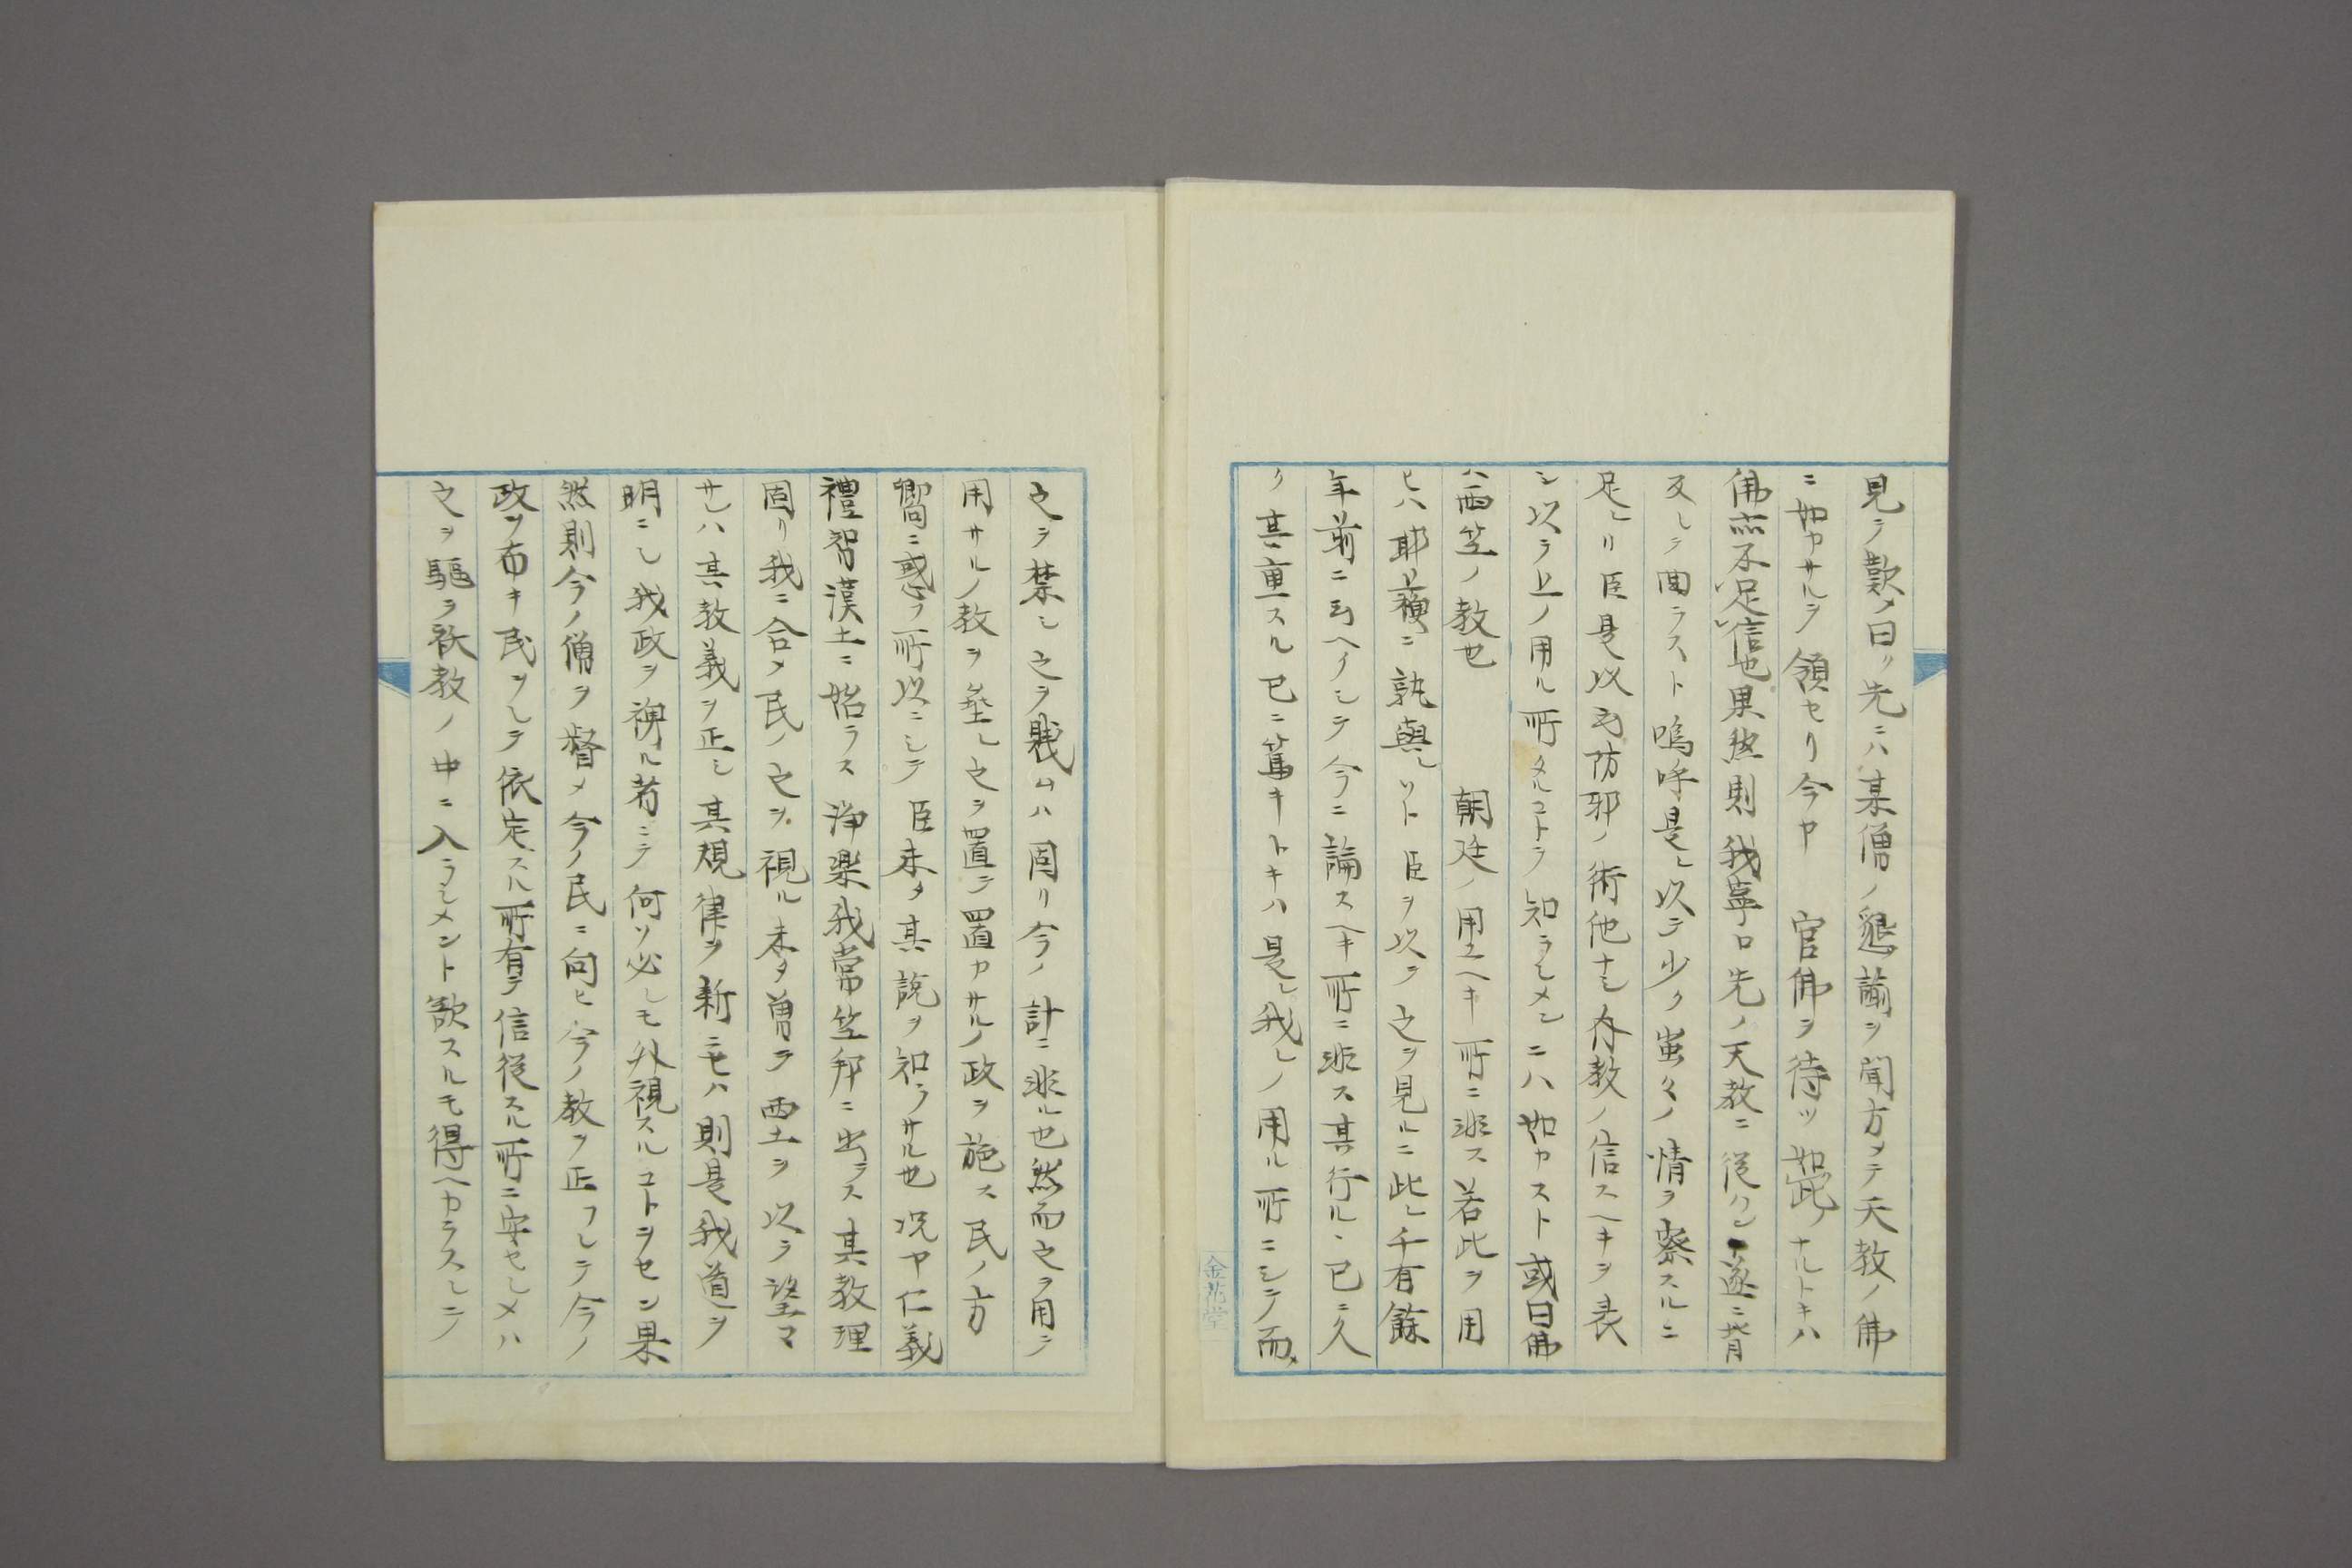 見テ歎メ曰ク先ニハ某僧ノ懇諭ヲ聞方メテ天教ノ佛
ニ如カサルヲ領セリ今ヤ 官佛ヲ待ツ如此ナルトキハ
佛亦不足信也果然則我寧ロ先ノ天教ニ従ハント遂ニ背
反シテ曲ラスト嗚呼是レ以テ少ク蚩々ノ情ヲ察スルニ
足レリ臣是以毛防邪ノ術他ナシ存教ノ信スヘキヲ表
シ以テ上ノ用ル所タルコトヲ知ラシメンニハ如カスト或曰佛
ハ西竺ノ教也 朝廷ノ用ユヘキ所ニ非ス若此ヲ用
ヒハ耶蘓ニ孰與レソト臣ヲ以テ之ヲ見ルニ此レ千有餘
年前ニ云ヘクシテ今ニ論スヘキ所ニ非ス其行ル、已ニ久
ク其重スル已ニ篤キトキハ是レ我レノ用ル所ニシテ而メ
之ヲ禁シ之ヲ賤ムハ固リ今ノ計ニ非ル也然而之ヲ用テ
用サルノ教ヲ埀レ之ヲ置テ置カサルノ政ヲ施ス民ノ方
嚮ニ惑フ所以ニシテ臣未タ其説ヲ知ラサル也况ヤ仁義
禮智漢土ニ始ラス浄樂我常竺邦ニ出ラス其教理
固リ我ニ合メ民ノ之ヲ視ル未タ曽テ西土ヲ以テ望マ
サレハ其教義ヲ正シ其規律ヲ新ニセハ則是我道ヲ
明ニシ我政ヲ裨ル者ニテ何ソ必シモ外視スルコトヲセン果
然則今ノ僧ヲ督メ今ノ民ニ向ヒ今ノ教ヲ正フシテ今ノ
政ヲ布キ民ヲシテ依定スル所有テ信従スル所ニ安セシメハ
之ヲ驅テ祅教ノ中ニ入ラシメント欲スルモ得ヘカラスシテ
金花堂